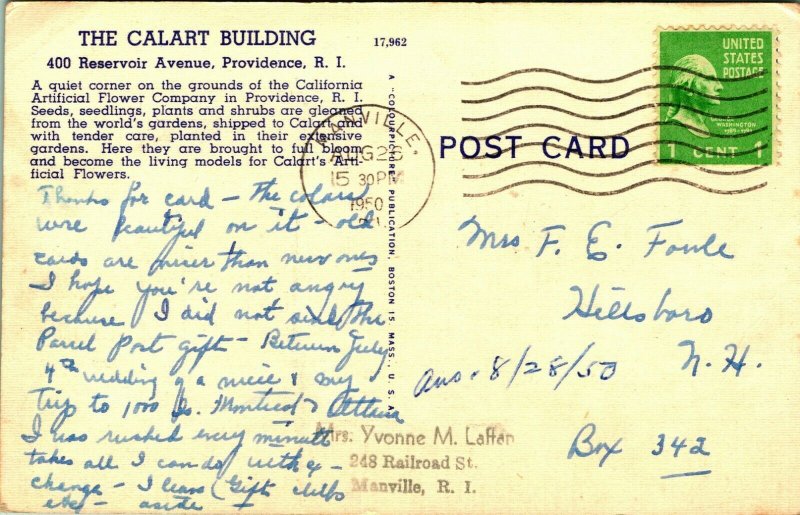 THE CALART BUILDING
400 Reservoir Avenue, Providence, R. I.
A quiet corner on the grounds of the California
Artificial Flower Company in Providence, R. I.
Seeds, seedlings, plants and shrubs are gleaned
from the world's gardens, shipped to Calart and
with tender care, planted in their extensive
gardens. Here they are brought to full bloom
and become the living models for Calart's Arti-
ficial Flowers.
17,962
A "COLOURPICTURE" PUBLICATION, BOSTON 15, MASS., U. S. A.
MANVILLE,
AUG 28
5 30 PM
1950
R.I.
UNITED
STATES
POSTAGE
WASHINGTON
1789-1797
1 CENT 1
POST CARD
Thanks for card - The colors
were beautiful on it - old
cards are nicer than new ones
I hope you're not angry
because I did not send the
Parcel Post gift - Between July
4th wedding of a niece & my
trip to 1000 Is. Montreal & Ottawa
I was rushed every minute
takes all I can do with ex-
change - I leave Gift clubs
etc - aside -
Mrs F. E. Fowle
Hillsboro
N. H.
Box 342
Ans. 8/28/50
Mrs. Yvonne M. Laffan
248 Railroad St.
Manville, R. I.